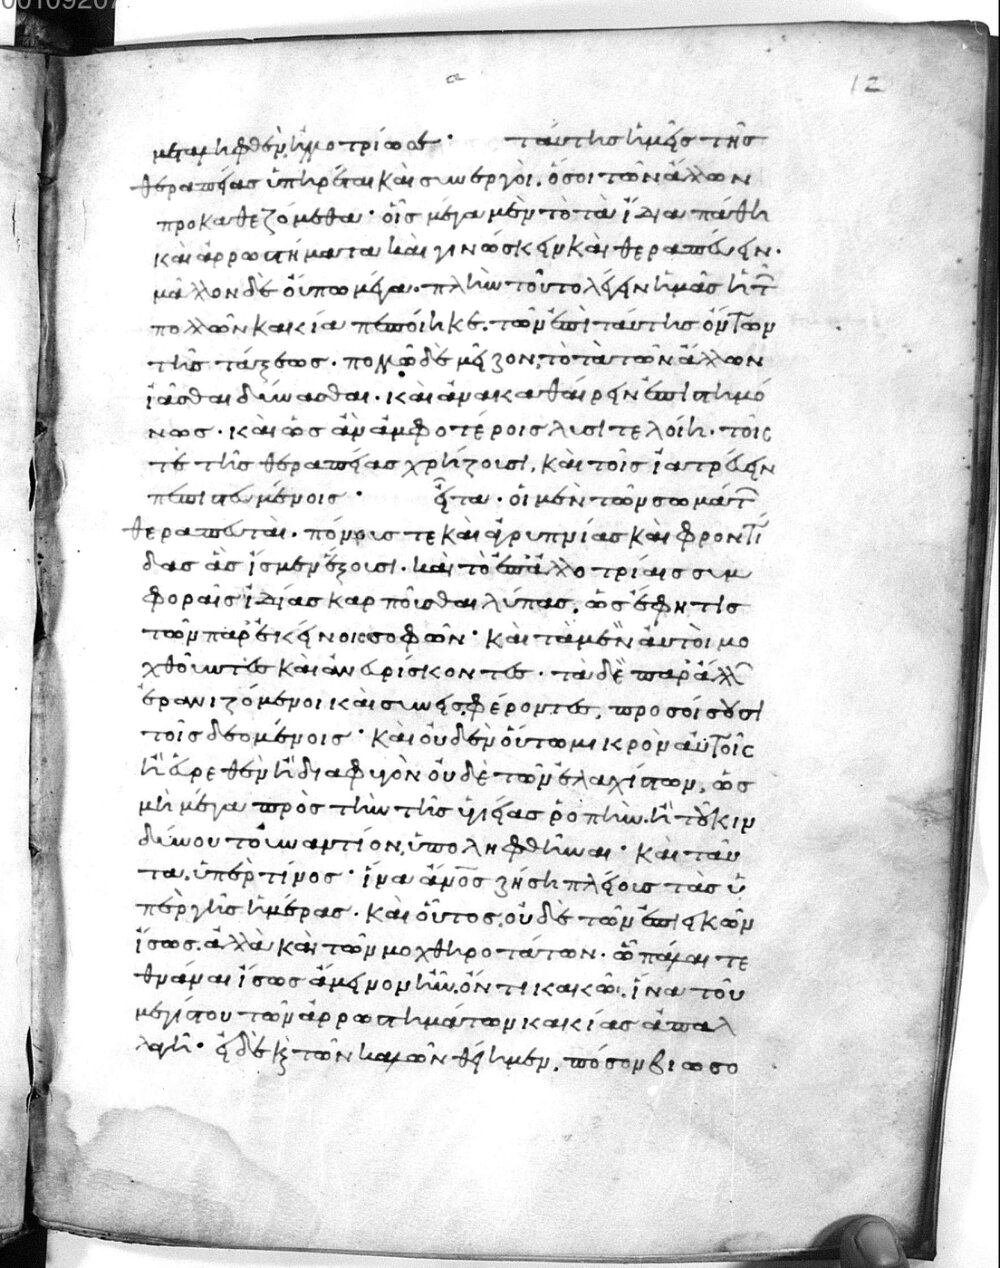 00109207
α 12
μεταληφθὲν ἡλλοτρίωσε· ταύτης ἡμεῖς τῆς
θεραπείας ὑπηρέται καὶ συνεργοὶ, ὅσοι τῶν ἄλλων
προκαθεζόμεθα· οἷς μέγα μὲν τὸ τὰ ἴδια πάθη
καὶ ἀρρωστήματα καὶ γινώσκειν καὶ θεραπεύειν.
μᾶλλον δὲ οὔπω μέγα. πλὴν τοῦτο λέγειν ἡμᾶς ἡ τῶν
πολλῶν κακία πεποίηκε. τῶν ἐπὶ ταύτης ὄντων
τῆς τάξεως. πολλῷ δὲ μεῖζον, τὸ τὰ τῶν ἄλλων
ἰᾶσθαι δύνασθαι. καὶ ἀνακαθαίρειν ἐπιστημό
νως. καὶ ὡς ἂν ἀμφοτέροις λυσιτελοίη. τοῖς
τε τῆς θεραπείας χρήζουσι, καὶ τοῖς ἰατρεύειν
πεπιστευμένοις· εἶτα. οἱ μὲν τῶν σωμάτων
θεραπευταὶ. πόνους τε καὶ ἀγρυπνίας καὶ φροντί
δας ἃς ἴσμεν ἕξουσι. καὶ τὸ ἐπ' ἀλλοτρίαις συμ
φοραῖς ἰδίας καρποῦσθαι λύπας, ὡς ἔφη τις
τῶν παρ' ἐκείνοις σοφῶν· καὶ τὰ μὲν αὐτοὶ μο
χθοῦντες καὶ ἀνευρίσκοντες. τὰ δὲ παρ' ἄλλων
ἐρανιζόμενοι καὶ συνεισφέροντες, προσοίσουσι
τοῖς δεομένοις· καὶ οὐδὲν οὕτω μικρὸν αὐτοῖς
ἢ εὑρεθὲν ἢ διαφυγὸν οὐδὲ τῶν ἐλαχίστων, ὡς
μὴ μέγα πρὸς τὴν τῆς ὑγιείας ῥοπὴν. ἢ τοῦ κιν
δύνου τοὐναντίον, ὑποληφθῆναι· καὶ ταῦ
τα, ὑπὲρ τίνος· ἵνα ἄνθρωπος ζήσῃ πλείους τὰς ὑ
πὲρ γῆς ἡμέρας. καὶ οὗτος, οὐδὲ τῶν ἐπιεικῶν
ἴσως. ἀλλὰ καὶ τῶν μοχθηροτάτων. ᾧ πάλαι τε
θνάναι ἴσως ἄμεινον ἦν, ὄντι κακῷ. ἵνα τοῦ
μεγίστου τῶν ἀρρωστημάτων κακίας ἀπαλ
λαγῇ· εἰ δὲ καὶ τῶν καλῶν θείημεν, πόσον βιώσο